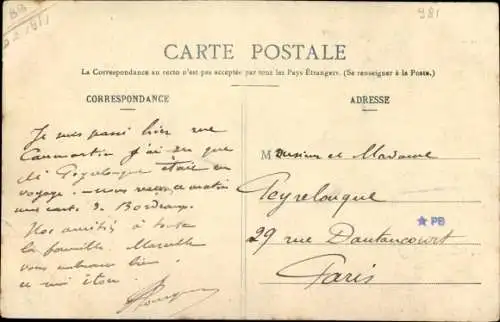 981
CARTE POSTALE
La Correspondance au recto n'est pas acceptée par tous les Pays Étrangers. (Se renseigner à la Poste.)
CORRESPONDANCE
ADRESSE
Je suis passé hier rue
Caumartin j'ai vu que
Mr Peyrelongue était en
voyage. nous
carte de Bordeaux.
Nos amitiés à toute
la famille. Marcelle
vous embrasse bien
Monsieur et Madame
Peyrelongue
29 rue Dautancourt
Paris
★ PB